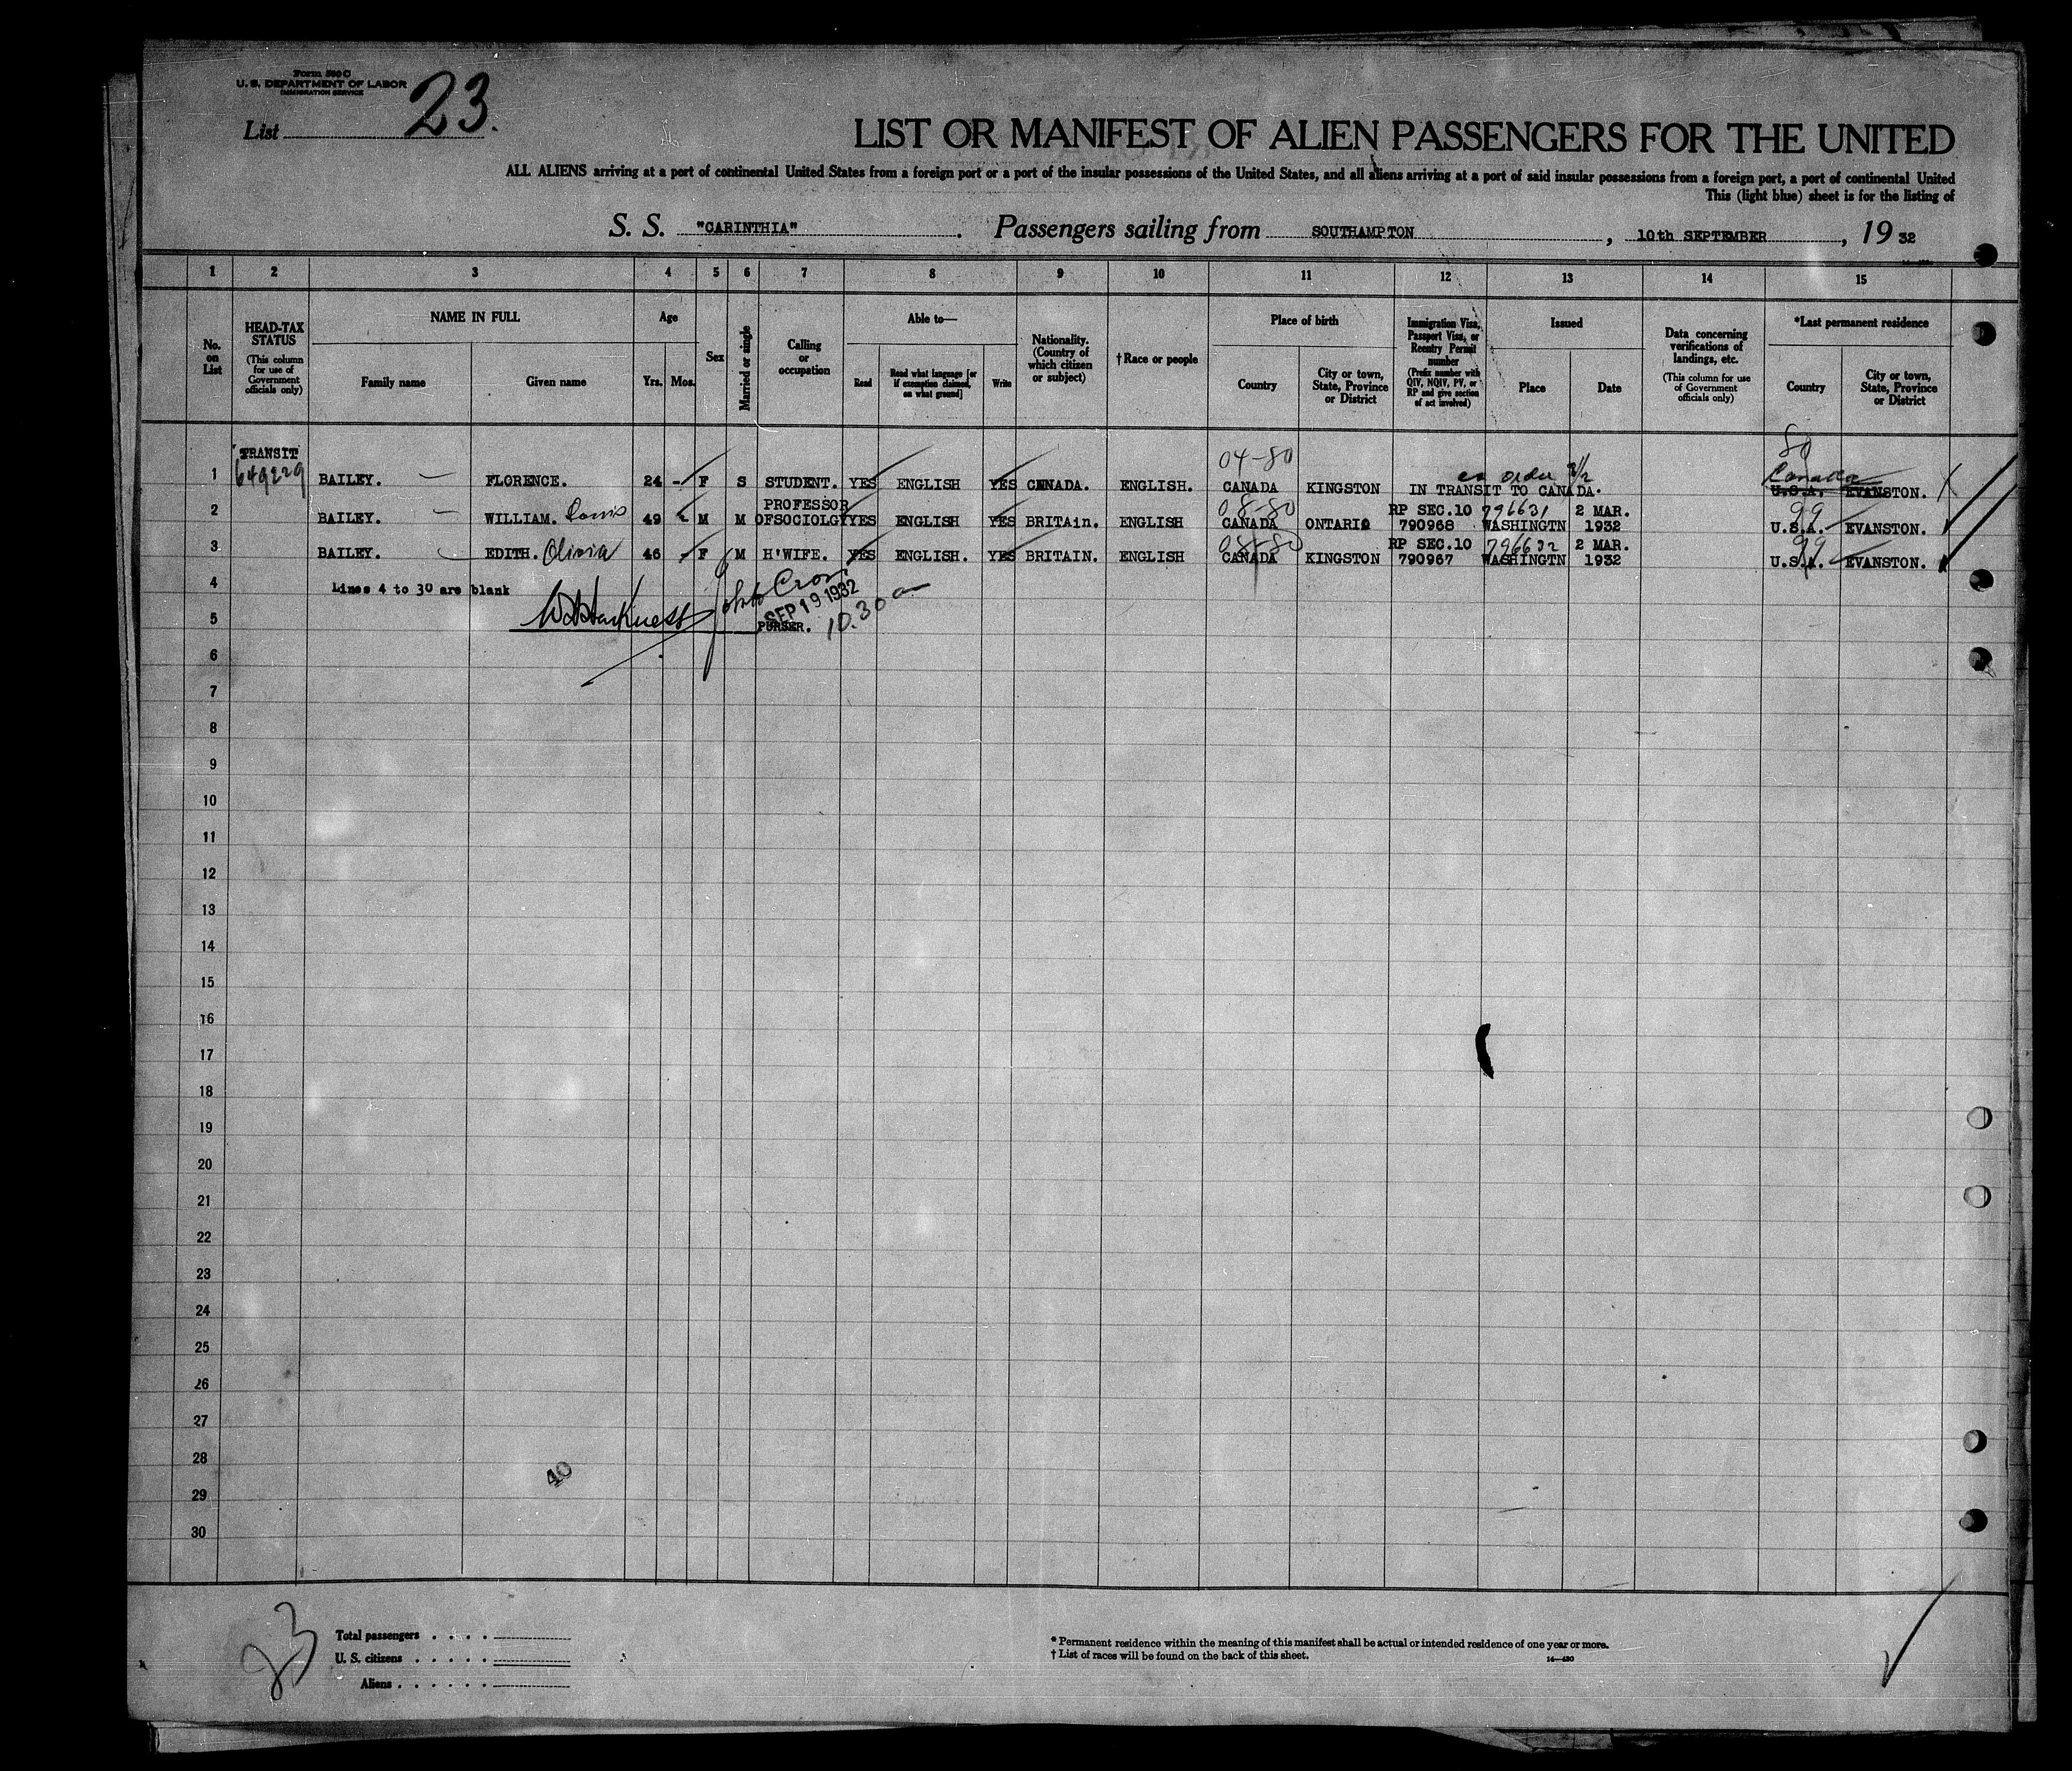 Form 500 C
U. S. DEPARTMENT OF LABOR
IMMIGRATION SERVICE
List 23.
LIST OR MANIFEST OF ALIEN PASSENGERS FOR THE UNITED
ALL ALIENS arriving at a port of continental United States from a foreign port or a port of the insular possessions of the United States, and all aliens arriving at a port of said insular possessions from a foreign port, a port of continental United
This (light blue) sheet is for the listing of
S. S. "CARINTHIA" . Passengers sailing from SOUTHAMPTON , 10th SEPTEMBER , 19 32
1 2 3 4 5 6 7 8 9 10 11 12 13 14 15
No. on List
HEAD-TAX STATUS (This column for use of Government officials only)
NAME IN FULL
Family name
Given name
Age
Yrs.
Mos.
Sex
Married or single
Calling or occupation
Able to—
Read
Read what language [or if exemption claimed, on what ground]
Write
Nationality. (Country of which citizen or subject)
† Race or people
Place of birth
Country
City or town, State, Province or District
Immigration Visa, Passport Visa, or Reentry Permit number (Prefix number with QIV, NQIV, PV, or RP and give section of act involved)
Issued
Place
Date
Data concerning verifications of landings, etc. (This column for use of Government officials only)
*Last permanent residence
Country
City or town, State, Province or District
TRANSIT 04-80 80
1 649229 BAILEY. — FLORENCE. 24 - F S STUDENT. YES ENGLISH YES CANADA. ENGLISH. CANADA KINGSTON IN TRANSIT TO CANADA. Canada U.S.A. EVANSTON. X
PROFESSOR 08-80 RP SEC.10 796631 2 MAR. 99
2 BAILEY. — WILLIAM. Louis 49 - M M OFSOCIOLGY YES ENGLISH YES BRITAin. ENGLISH CANADA ONTARIO 790968 WASHINGTN 1932 U.S.A. EVANSTON.
08-80 RP SEC.10 796632 2 MAR. 99
3 BAILEY. EDITH. Olivia 46 - F M H'WIFE. YES ENGLISH. YES BRITAIN. ENGLISH CANADA KINGSTON 790967 WASHINGTN 1932 U.S.A. EVANSTON.
4 Lines 4 to 30 are blank
SEP 19 1932
5 PURSER. 10.30 am
6
7
8
9
10
11
12
13
14
15
16
17
18
19
20
21
22
23
24
25
26
27
28
40
29
30
23
Total passengers . . . .
U. S. citizens . . . . .
Aliens . . . . . .
* Permanent residence within the meaning of this manifest shall be actual or intended residence of one year or more.
† List of races will be found on the back of this sheet.
14—430